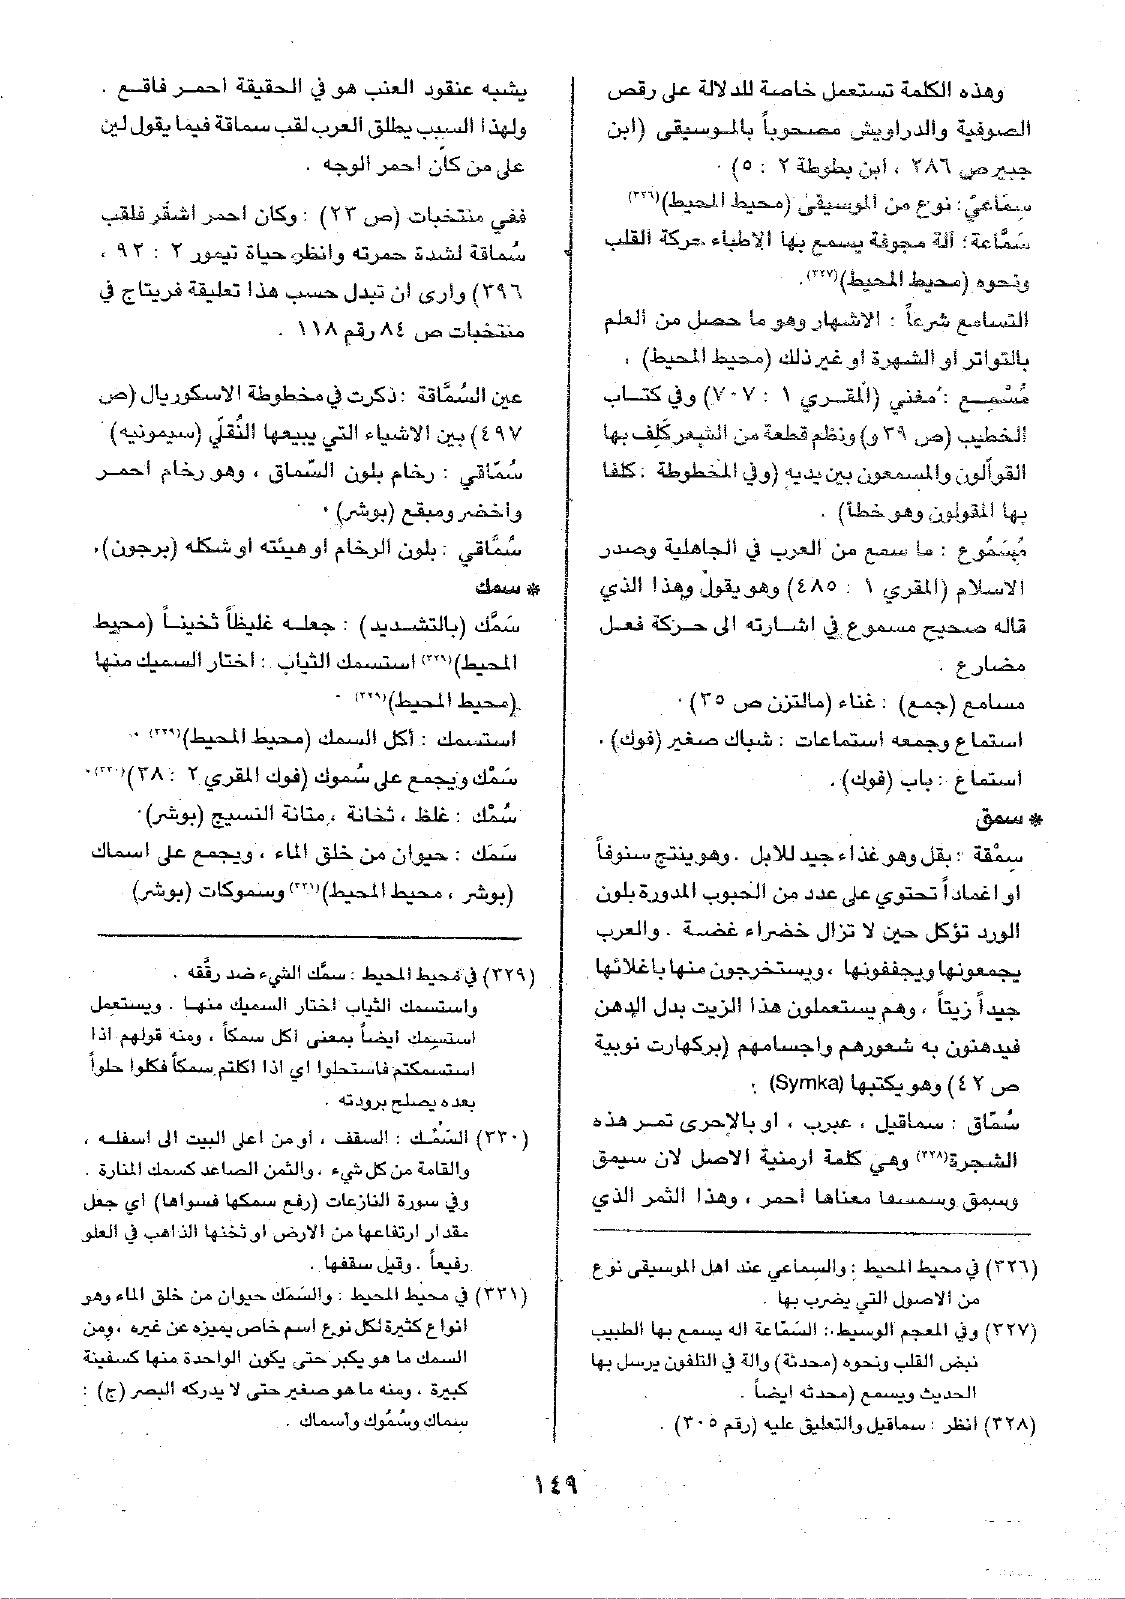 وهذه الكلمة تستعمل خاصة للدلالة على رقص
الصوفية والدراويش مصحوباً بالموسيقى (ابن
جبير ص ٢٨٦ ، ابن بطوطة ٢ : ٥) .
سِمَاعيّ : نوع من الموسيقى (محيط المحيط)(٣٢٦)
سَمَّاعة : آلة مجوفة يسمع بها الاطباء حركة القلب
ونحوه (محيط المحيط)(٣٢٧).
التسامع شرعاً : الاشهار وهو ما حصل من العلم
بالتواتر او الشهرة او غير ذلك (محيط المحيط) ،
مُسْمِع : مغني (المقري ١ : ٧٠٧) وفي كتاب
الخطيب (ص ٣٩ و) ونظم قطعة من الشعر كَلِف بها
القوالون والمسمعون بين يديه (وفي المخطوطة : كلفا
بها المقولون وهو خطأ) .
مَسْمُوع : ما سمع من العرب في الجاهلية وصدر
الاسلام (المقري ١ : ٤٨٥) وهو يقول وهذا الذي
قاله صحيح مسموع في اشارته الى حركة فعل
مضارع .
مسامع (جمع) : غناء (مالتزن ص ٣٥) .
استماع وجمعه استماعات : شباك صغير (فوك) .
استماع : باب (فوك) .
* سمق
سِمْقة : بقل وهو غذاء جيد للابل . وهو ينتج سنوفاً
او اغماداً تحتوي على عدد من الحبوب المدورة بلون
الورد تؤكل حين لا تزال خضراء غضة . والعرب
يجمعونها ويجففونها ، ويستخرجون منها باغلائها
جيداً زيتاً ، وهم يستعملون هذا الزيت بدل الدهن
فيدهنون به شعورهم واجسامهم (بركهارت نوبية
ص ٤٢) وهو يكتبها (Symka) :
سُمّاق : سماقيل ، عبرب ، او بالاحرى تمر هذه
الشجرة(٣٢٨) وهي كلمة ارمنية الاصل لان سيمق
وسمق معناها احمر ، وهذا الثمر الذي
(٣٢٦) في محيط المحيط : والسماعي عند اهل الموسيقى نوع
من الاصول التي يضرب بها .
(٣٢٧) وفي المعجم الوسيط : السَّمّاعة اله يسمع بها الطبيب
نبض القلب ونحوه (محدثة) والة في التلفون يرسل بها
الحديث ويسمع (محدثه ايضاً .
(٣٢٨) انظر : سماقيل والتعليق عليه (رقم ٣٠٥) .
يشبه عنقود العنب هو في الحقيقة احمر فاقع .
ولهذا السبب يطلق العرب لقب سماقة فيما يقول لين
على من كان احمر الوجه .
ففي منتخبات (ص ٢٣) : وكان احمر اشقر فلقب
سُماقة لشدة حمرته وانظر حياة تيمور ٢ : ٩٢ ،
٣٩٦) وارى ان تبدل حسب هذا تعليقة فريتاج في
منتخبات ص ٨٤ رقم ١١٨ .
عين السُمَّاقة : ذكرت في مخطوطة الاسكوريال (ص
٤٩٧) بين الاشياء التي يبيعها النُقَلي (سيمونيه)
سُمّاقي : رخام بلون السّماق ، وهو رخام احمر
واخضر ومبقع (بوشر) .
سُمَّاقي : بلون الرخام او هيئته او شكله (برجون).
* سمك
سَمَّك (بالتشديد) : جعله غليظاً ثخيناً (محيط
المحيط)(٣٢٩) استسمك الثياب : اختار السميك منها
(محيط المحيط)(٣٢٩) .
استسمك : أكل السمك (محيط المحيط)(٣٢٩) .
سَمْك ويجمع على سُموك (فوك المقري ٢ : ٣٨)(٣٣٠) .
سُمْك : غلظ ، ثخانة ، متانة النسيج (بوشر) .
سَمَك : حيوان من خلق الماء ، ويجمع على اسماك
(بوشر ، محيط المحيط)(٣٣١) وسموكات (بوشر)
(٣٢٩) في محيط المحيط : سمَّك الشيء ضد رقَّقه .
واستسمك الثياب اختار السميك منها . ويستعمل
استسمك ايضاً بمعنى اكل سمكاً ، ومنه قولهم اذا
استسمكتم فاستحلوا اي اذا اكلتم سمكاً فكلوا حلواً
بعده يصلح برودته .
(٣٣٠) السَّمْك : السقف ، أو من اعلى البيت الى اسفله ،
والقامة من كل شيء ، والثمن الصاعد كسمك المنارة .
وفي سورة النازعات (رفع سمكها فسواها) اي جعل
مقدار ارتفاعها من الارض او ثخنها الذاهب في العلو
رفيعاً . وقيل سقفها .
(٣٣١) في محيط المحيط : والسَمَك حيوان من خلق الماء وهو
انواع كثيرة لكل نوع اسم خاص يميزه عن غيره ، ومن
السمك ما هو يكبر حتى يكون الواحدة منها كسفينة
كبيرة ، ومنه ما هو صغير حتى لا يدركه البصر (ج) :
سِماك وسُمُوك وأسماك .
١٤٩